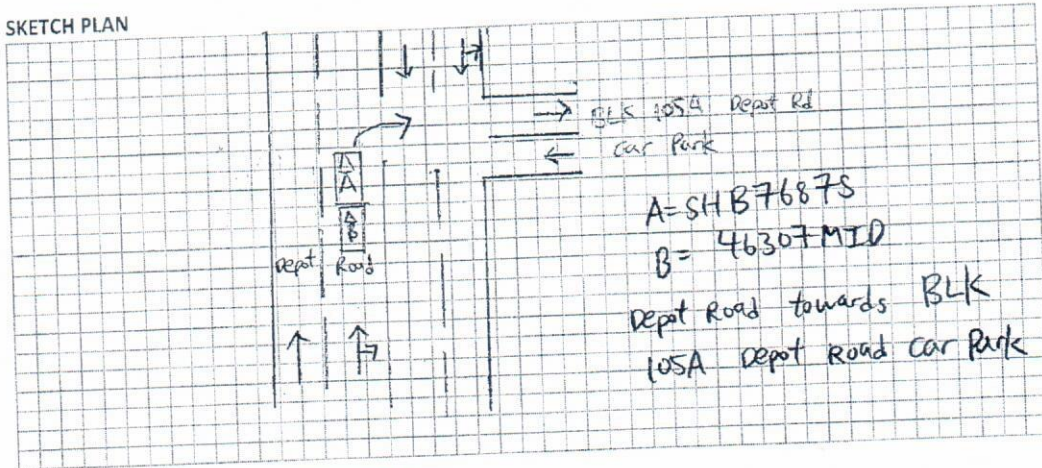 SKETCH PLAN
BLK 105A Depot Rd
car Park
A
B
Depot Road
A=SHB7687S
B= 46307MID
Depot Road towards BLK
105A Depot Road car Park